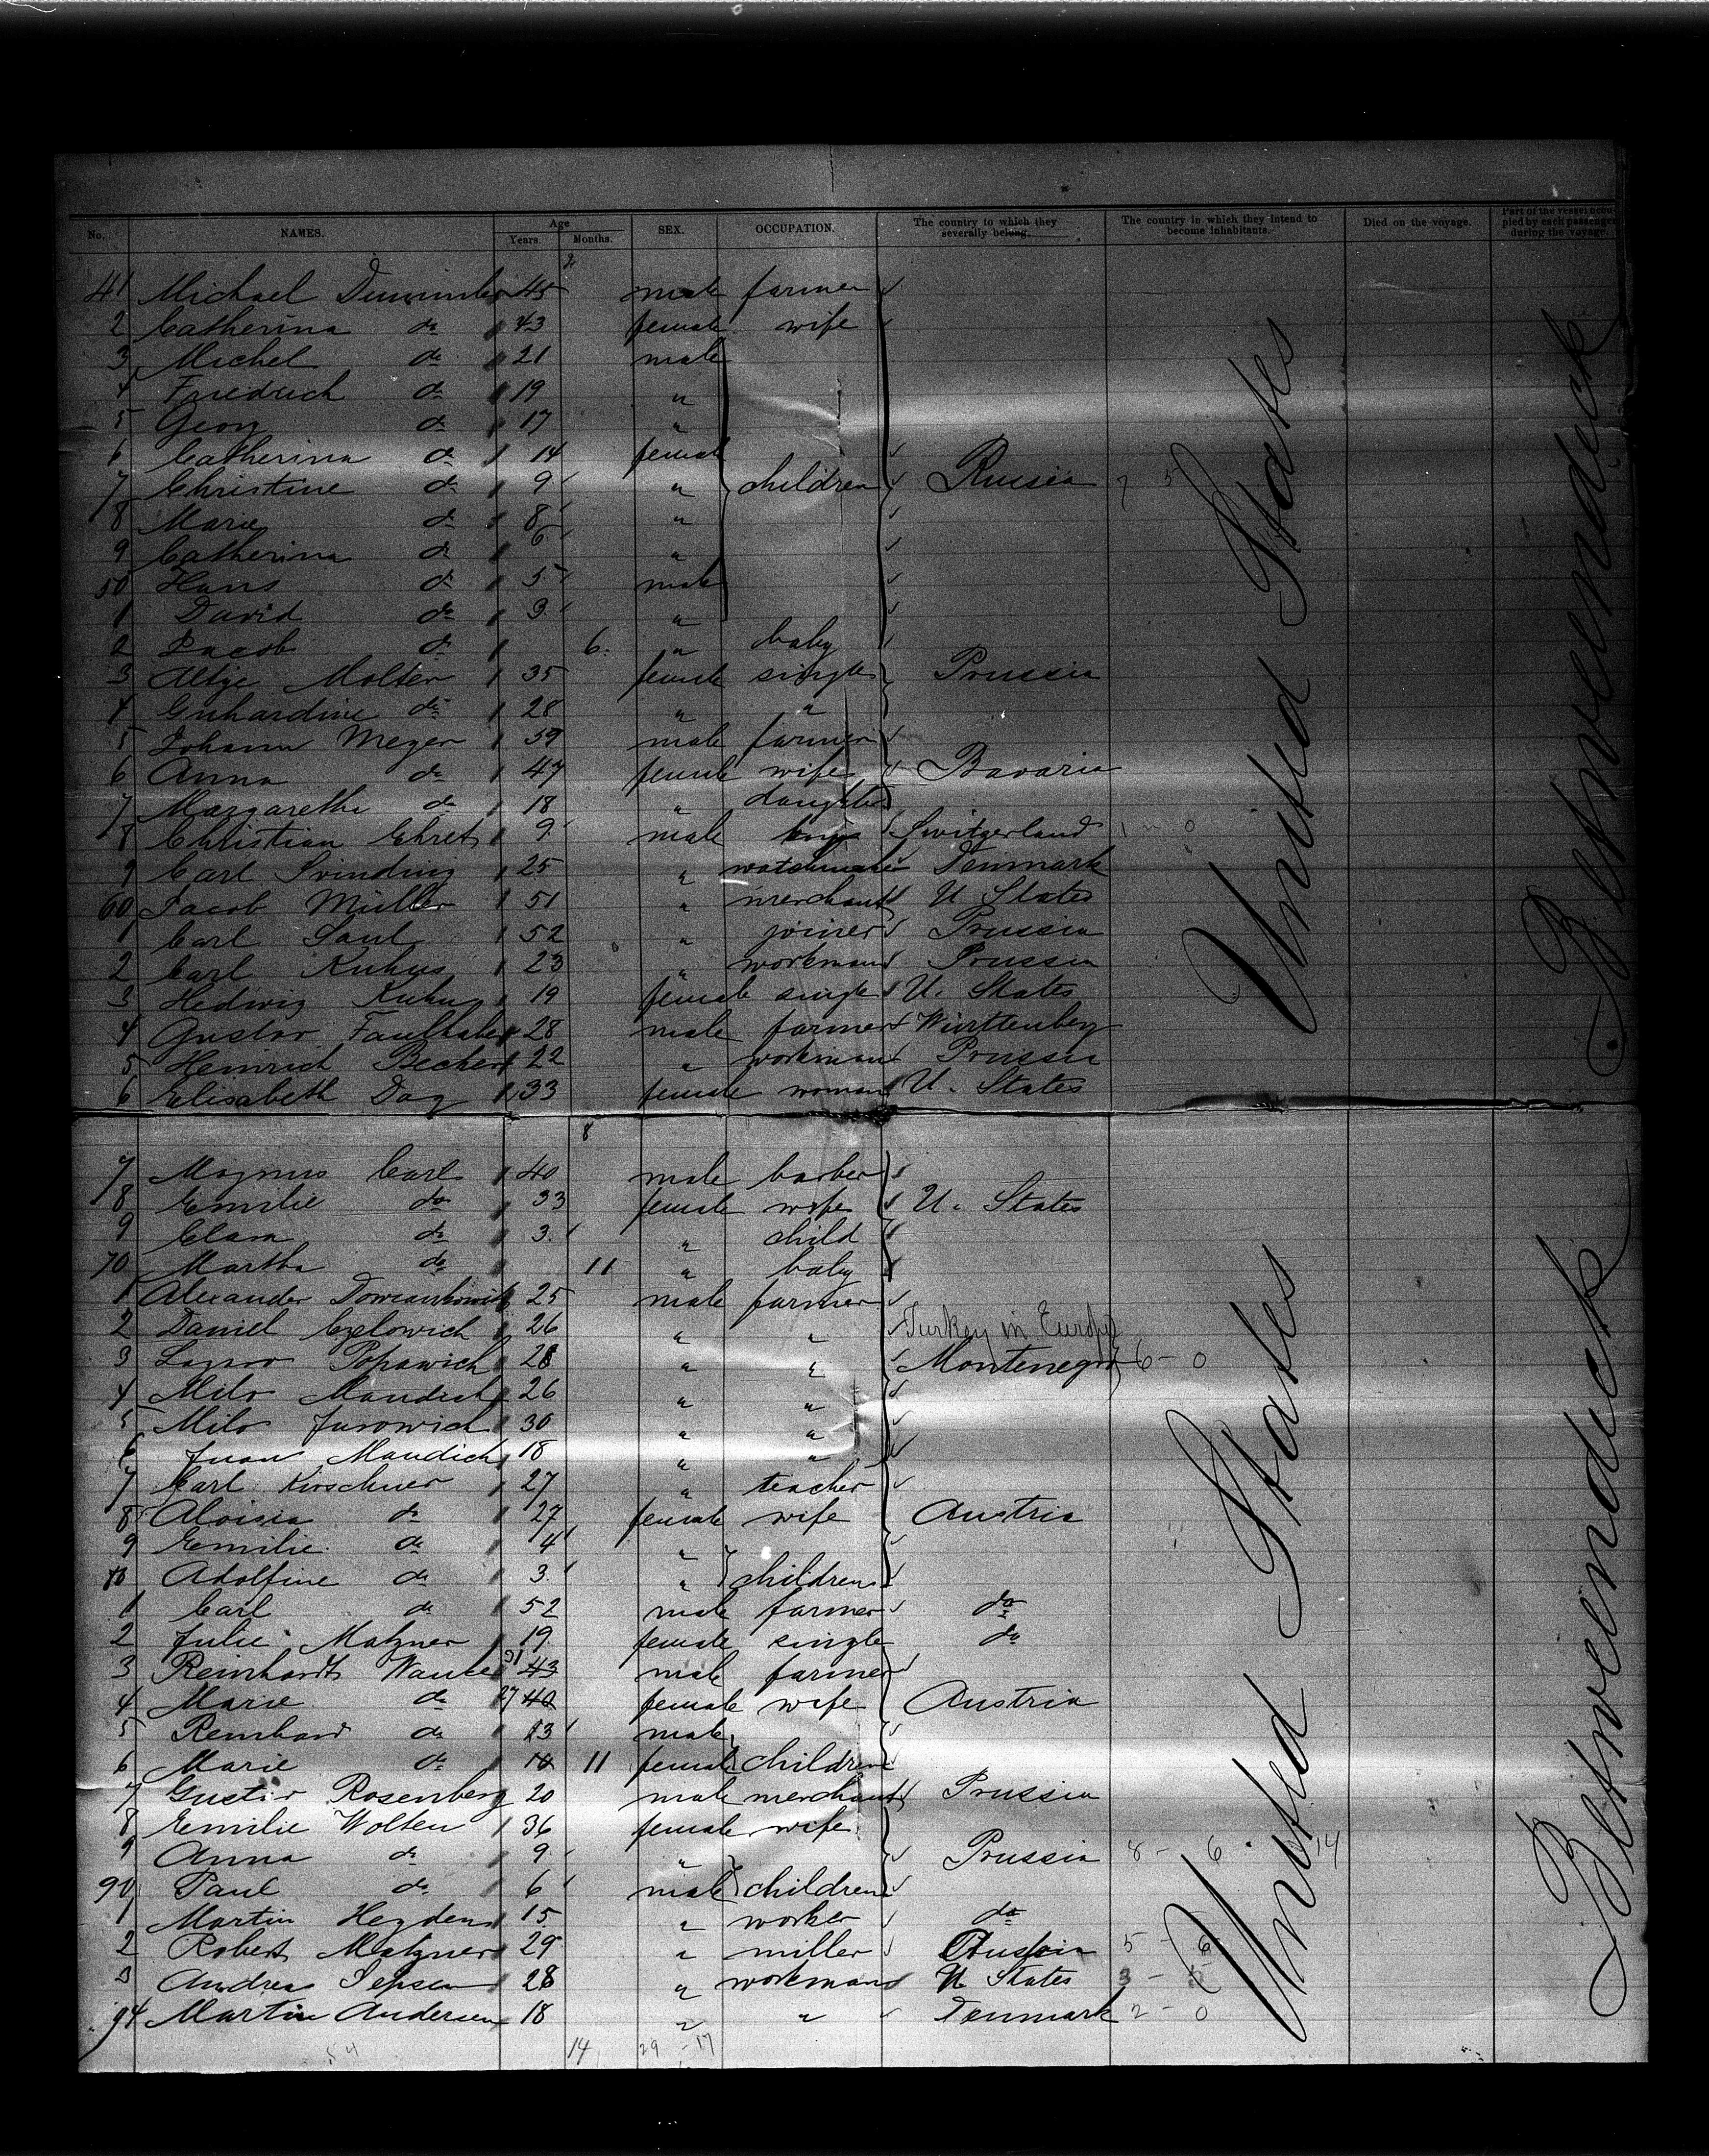 No. NAMES. Age Years. Months. SEX. OCCUPATION. The country to which they severally belong. The country in which they intend to become inhabitants. Died on the voyage. Part of the vessel occupied by each passenger during the voyage.
2
41 Michael 45 male farmer
2 Catherina do 43 female wife
3 Michel do 21 male
4 Friedrich do 19 "
5 Georg do 17 "
6 Catherina do 14 female
7 Christine do 9 " children Russia 7 5
8 Marie do 8 "
9 Catherina do 6 "
50 Hans do 5 male
1 David do 3 "
2 Jacob do 6 " baby
3 Altje Molter 35 female single Prussia
4 Gerhardine do 28 " "
5 Johann Meyer 59 male farmer
6 Anna do 47 female wife Bavaria
7 Margarethe do 18 " daughter
8 Christian Ehret 9 male Switzerland 1 - 0
9 Carl Svinding 25 " watchmaker Denmark
60 Jacob Müller 51 " merchant U States
1 Carl Saul 52 " joiner Prussia
2 Carl Kuhus 23 " workman Prussia
3 Hedwig Kuhus 19 female single U. States
4 Gustav Faulhaber 28 male farmer Württenberg
5 Heinrich Becker 22 " workman Prussia
6 Elisabeth Day 33 female woman U. States
8
7 Magnus Carl 40 male barber
8 Emilie do 33 female wife U. States
9 Clara do 3 " child
70 Martha do 11 " baby
1 Alexander 25 male farmer
2 Daniel Czelowich 26 " " Turkey in Europe
3 Lazar Popawich 28 " " Montenegro 6 - 0
4 Milo Mandich 26 " "
5 Milo Jurowich 30 " "
6 Juan Mandich 18 " "
7 Carl Kirschner 27 " teacher
8 Aloisia do 27 female wife Austria
9 Emilie do 4 "
Adolfine do 3 " children
1 Carl do 52 male farmer do
2 Julie Matzner 19 female single do
3 Reinhardt 31 43 male farmer
4 Marie do 27 40 female wife Austria
5 Reinhard do 13 male
6 Marie do 10 11 female children
7 Gustav Rosenberg 20 male merchant Prussia
8 Emilie Wolten 36 female wife
9 Anna do 9 " Prussia 8 - 6 14
90 Paul do 6 male children
1 Martin Heyden 15 " worker do
2 Robert Matzner 29 " miller Austria 5 - 6
3 Andrea Jepsen 28 " workman U States 3 -
94 Martin Andersen 18 " " Denmark 2 - 0
54 14 29 - 17
United States
Betweendeck
United States
Betweendeck